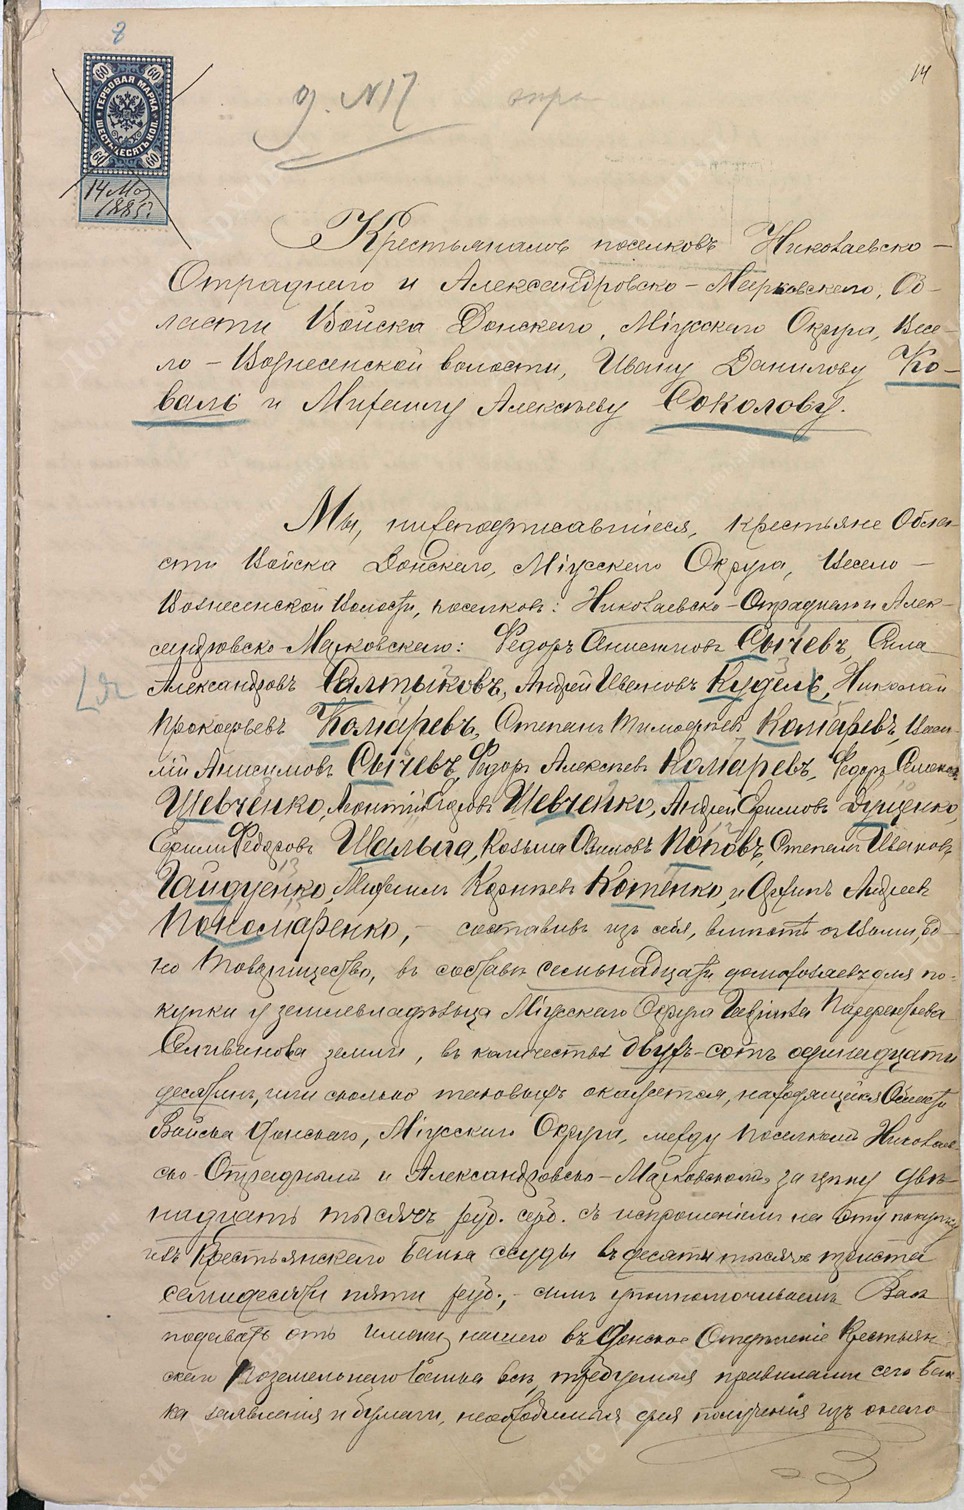 8
14
60 60
ГЕРБОВАЯ МАРКА
ШЕСТЬДЕСЯТЪ КОП.
60 60
14 Мая
1885 г.
д. №17
Крестьянамъ поселковъ Николаевско-
Отраднаго и Александровско-Марковскаго, Об-
ласти Войска Донскаго, Міусскаго Округа, Весе-
ло-Вознесенской волости, Ивану Данилову Ко-
валь и Михаилу Алексѣеву Соколову.
Мы, нижеподписавшіеся, крестьяне Обла-
сти Войска Донскаго, Міусскаго Округа, Весело-
Вознесенской Волости, поселковъ: Николаевско-Отраднаго и Алек-
сандровско-Марковскаго: Федоръ Анисимовъ Сычевъ, Сила
Александровъ Салтыковъ, Андрей Ивановъ Кудель, Николай
Прокофьевъ Комаревъ, Степанъ Тимофеевъ Комаревъ, Васи-
лій Анисимовъ Сычевъ, Федоръ Алексѣевъ Комаревъ, Федоръ Семеновъ
Шевченко, Леонтій Шевченко, Андрей Ефимовъ Дуценко,
Ефимъ Федоровъ Шалыга, Козьма Поповъ, Степанъ Ивановъ
Гайдуенко, Михаилъ Корнѣевъ Котенко, и Осипъ Андреевъ
Пономаренко, - составивъ изъ себя, вмѣстѣ съ Вами, од-
но товарищество, въ составѣ семьнадцати домохозяевъ для по-
купки у землевладѣльца Міусскаго Округа Гавріила Парфентьева
Селиванова земли, въ количествѣ двухъ-сотъ одинадцати
десятинъ, или сколько таковыхъ окажется, находящейся Области
Войска Донскаго, Міусскаго Округа, между поселками Николаев-
ско-Отраднымъ и Александровско-Марковскимъ за цѣну двѣ-
надцать тысячъ руб. сер. съ испрошеніемъ на эту покупку
изъ Крестьянскаго Банка ссуды въ десять тысячъ триста
семидесяти пяти руб., - симъ уполномочиваемъ Васъ
подавать отъ имени нашего въ Донское Отдѣленіе Крестьян-
скаго Поземельнаго Банка всѣ, требуемыя правилами сего Бан-
ка заявленія и бумаги, необходимыя для полученія изъ онаго